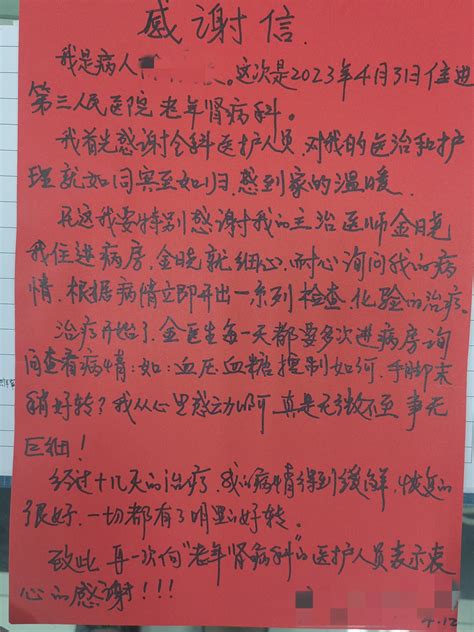 感谢信
我是病人 。这次是2023年4月31日住进
第三人民医院老年肾病科。
我首先感谢全科医护人员,对我的医治和护
理就如同宾至如归,感到家的温暖。
在这我要特别感谢我的主治医师金晓
我住进病房,金晓就细心,耐心询问我的病
情,根据病情立即开出一系列检查,化验的治疗。
治疗开始了,金医生每一天都要多次进病房询
问查看病情:如:血压血糖控制如何,手脚
稍好转?我从心里感动啊真是无微不至事无
巨细!
经过十几天的治疗,我的病情得到缓解,恢复的
很好,一切都有了明显的好转。
致此再一次向“老年肾病科”的医护人员表示衷
心的感谢!!!
4.12